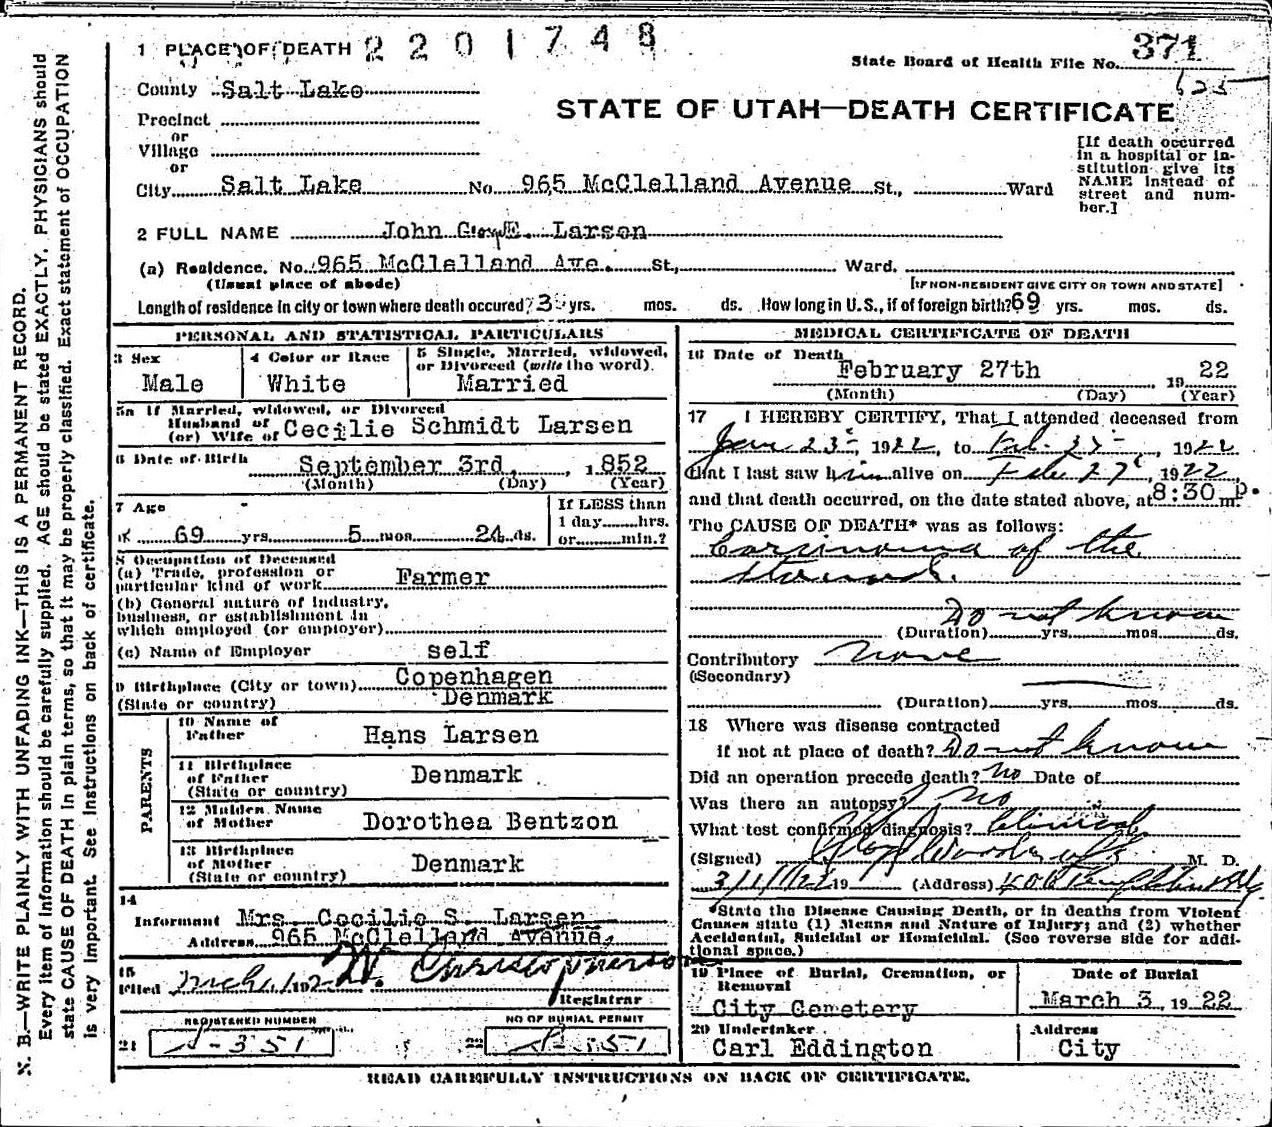 N. B.—WRITE PLAINLY WITH UNFADING INK—THIS IS A PERMANENT RECORD.
Every item of information should be carefully supplied. AGE should be stated EXACTLY. PHYSICIANS should
state CAUSE OF DEATH in plain terms, so that it may be properly classified. Exact statement of OCCUPATION
is very important. See instructions on back of certificate.
1 PLACE OF DEATH 2201748
State Board of Health File No. 371
County Salt Lake
STATE OF UTAH—DEATH CERTIFICATE
Precinct
or
Village
or
City Salt Lake No. 965 McClelland Avenue St., Ward
[If death occurred
in a hospital or in-
stitution give its
NAME instead of
street and num-
ber.]
2 FULL NAME John E. Larsen
(a) Residence. No. 965 McClelland Ave. St., Ward.
(Usual place of abode) [IF NON-RESIDENT GIVE CITY OR TOWN AND STATE]
Length of residence in city or town where death occured? 3 yrs. mos. ds. How long in U.S., if of foreign birth? 69 yrs. mos. ds.
PERSONAL AND STATISTICAL PARTICULARS
3 Sex
Male
4 Color or Race
White
5 Single, Married, widowed,
or Divorced (write the word).
Married
5a If Married, widowed, or Divorced
Husband of
(or) Wife of Cecilie Schmidt Larsen
6 Date of Birth
September 3rd, 1852
(Month) (Day) (Year)
7 Age
69 yrs 5 mos 24 ds.
If LESS than
1 day hrs.
or min.?
8 Occupation of Deceased
(a) Trade, profession or
particular kind of work Farmer
(b) General nature of industry,
business, or establishment in
which employed (or employer)
(c) Name of Employer self
9 Birthplace (City or town) Copenhagen
(State or country) Denmark
PARENTS
10 Name of
Father Hans Larsen
11 Birthplace
of Father
(State or country) Denmark
12 Maiden Name
of Mother Dorothea Bentzon
13 Birthplace
of Mother
(State or country) Denmark
14
Informant Mrs. Cecilie S. Larsen
Address 965 McClelland Avenue,
15
Filed Mch 1, 192
Registrar
REGISTERED NUMBER
21 S-351
NO OF BURIAL PERMIT
22
MEDICAL CERTIFICATE OF DEATH
16 Date of Death
February 27th 19 22
(Month) (Day) (Year)
17 I HEREBY CERTIFY, That I attended deceased from
Jan 23 1922, to Feb. 1922
that I last saw him alive on Feb 27 1922
and that death occurred, on the date stated above, at 8:30 P. m.
The CAUSE OF DEATH* was as follows:
Carcinoma of the
stomach.
Do not know
(Duration) yrs. mos. ds.
Contributory None
(Secondary)
(Duration) yrs. mos. ds.
18 Where was disease contracted
if not at place of death? Do not know
Did an operation precede death? No Date of
Was there an autopsy? No
What test confirmed diagnosis? Clinical
(Signed) M. D.
3/1/1922 19 (Address)
*State the Disease Causing Death, or in deaths from Violent
Causes state (1) Means and Nature of Injury; and (2) whether
Accidental, Suicidal or Homicidal. (See reverse side for addi-
tional space.)
19 Place of Burial, Cremation, or
Removal
City Cemetery
Date of Burial
March 3, 19 22
20 Undertaker
Carl Eddington
Address
City
READ CAREFULLY INSTRUCTIONS ON BACK OF CERTIFICATE.